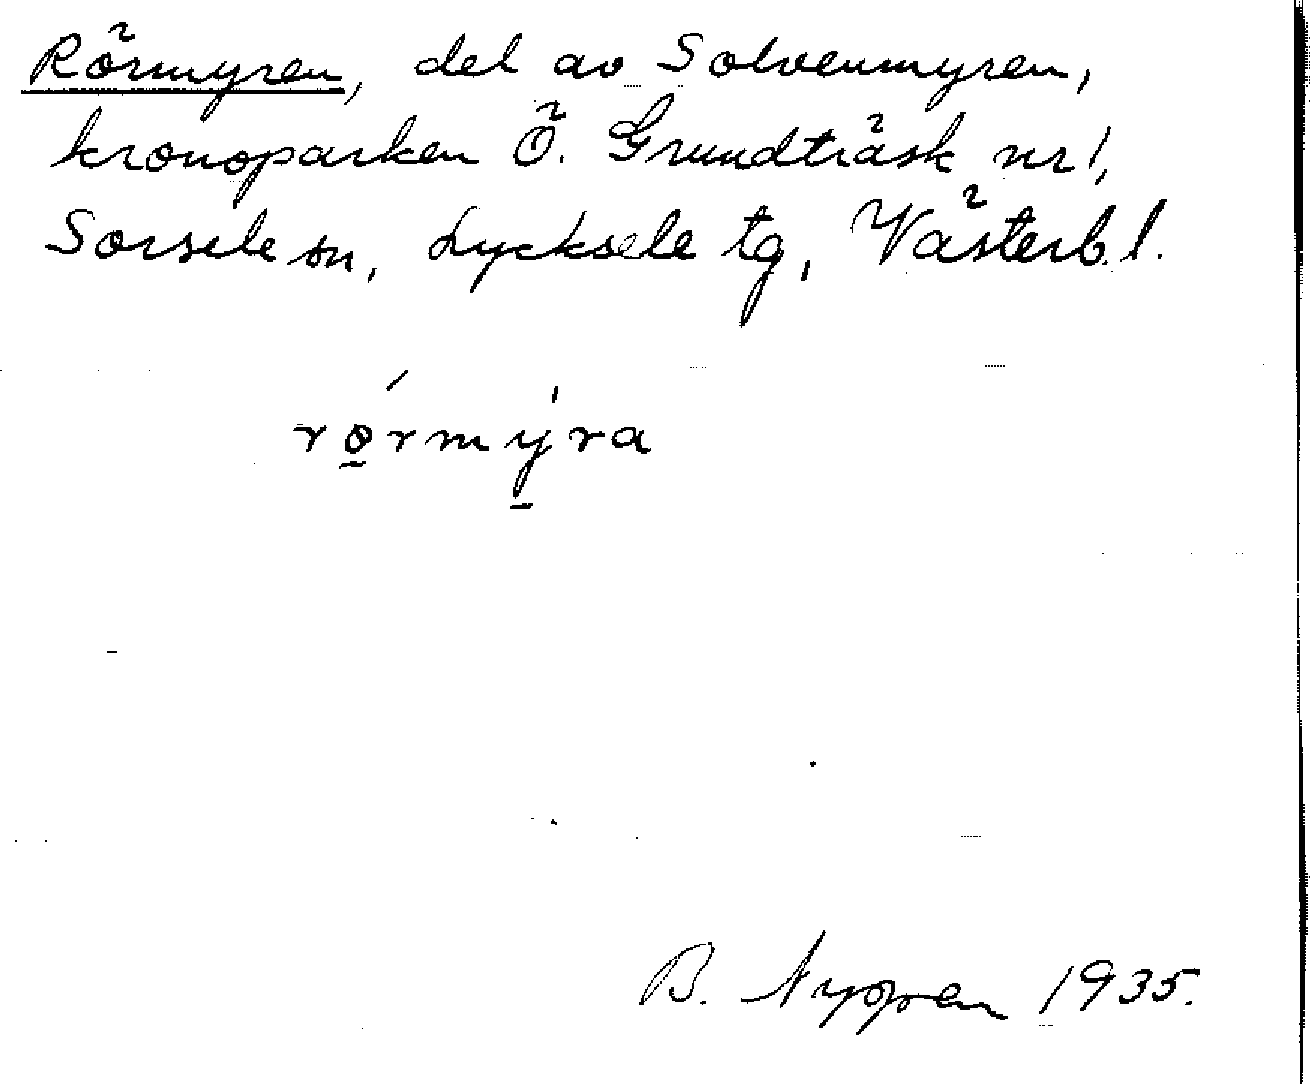 Rörmyren, del av Solvenmyren,
kronoparken Ö. Grundträsk nr 1,
Sorsele sn, Lycksele tg, Västerb. l.
rǿ̱rmy̱̍ra
B. Nyppen 1935.